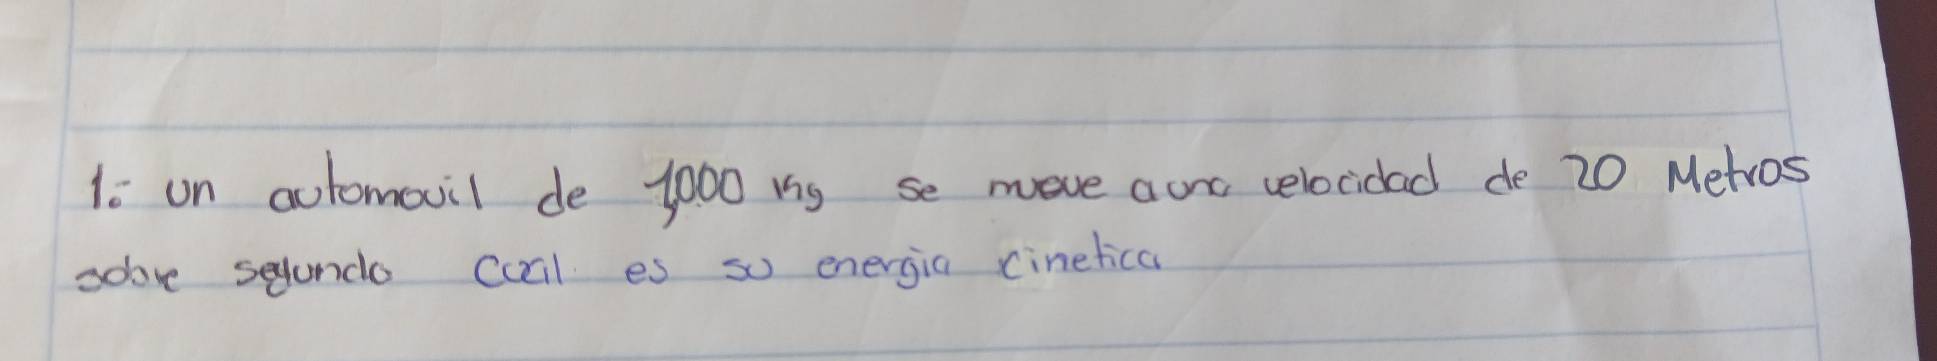 1.- un automovil de 1,000 kg se mueve a una velocidad de 20 Metros
sobre segundo Cual es su energia cinetica